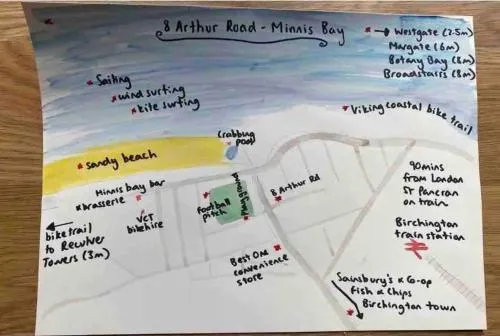 8 Arthur Road - Minnis Bay
→ Westgate (2.5m)
Margate (6m)
Botany Bay (8m)
Broadstairs (8m)
Sailing
wind surfing
kite surfing
Viking coastal bike trail
Crabbing
pool
sandy beach
90mins
from London
St Pancran
on train
Minnis bay bar
& brasserie
VCT
bikehire
football
pitch
Playground
8 Arthur Rd
Birchington
train station
←
bike trail
to Reculver
Towers (3m)
Best One
convenience
store
Sainsbury's & Co-op
Fish & Chips
Birchington town